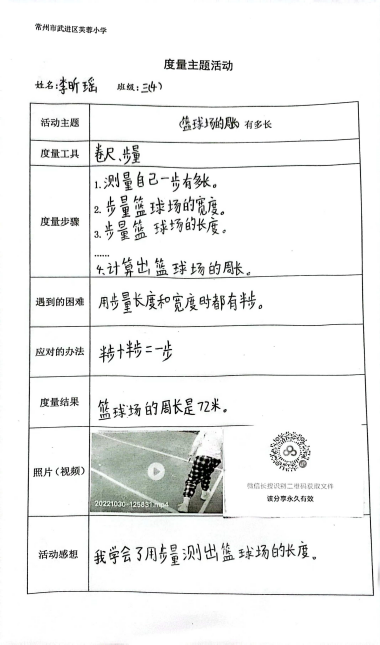 常州市武进区芙蓉小学
度量主题活动
姓名:李昕瑶 班级:三(4)
活动主题 (篮球场的周长) 有多长
度量工具 卷尺、步量
度量步骤
1.测量自己一步有多长。
2.步量篮球场的宽度。
3.步量篮球场的长度。
......
4.计算出篮球场的周长。
遇到的困难 用步量长度和宽度时都有半步。
应对的办法 半步+半步=一步
度量结果 篮球场的周长是72米。
照片(视频)
20221030-125831.mp4
微信长按识别二维码获取文件
该分享永久有效
活动感想 我学会了用步量测出篮球场的长度。